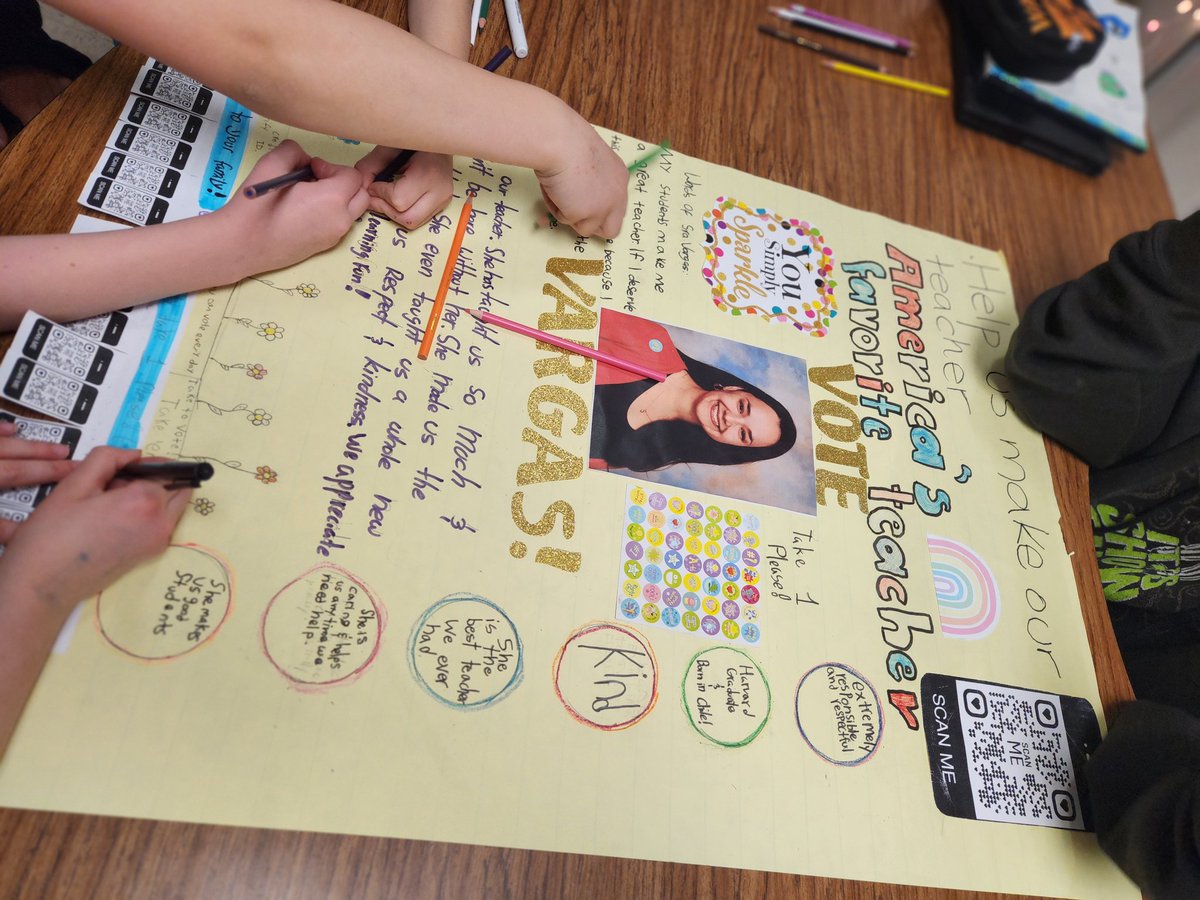 Help us make our
teacher
America's
favorite teacher
VOTE
VARGAS!
You
Simply
Sparkle
Words of Sra Vargas:
My students make me
a great teacher. If I deserve
this
because I
the
Take 1
Please!
SCAN ME
SCAN
ME
extremely
responsible
and respectful
Harvard
Graduate
&
Born in Chile!
Kind
She
is the
best teacher
We ever
had
She is
caring & helps
us any time we
need help.
She makes
us good
Students
Our teacher. She has taught us so much &
be here without her. She made us the
She even taught us a whole new
us Respect & kindness, We appreciate
learning fun!
can vote every day
Take to Vote!
to your family!
SCAN ME
SCAN ME
SCAN ME
SCAN ME
SCAN ME
SCAN ME
IT'S
SHOW